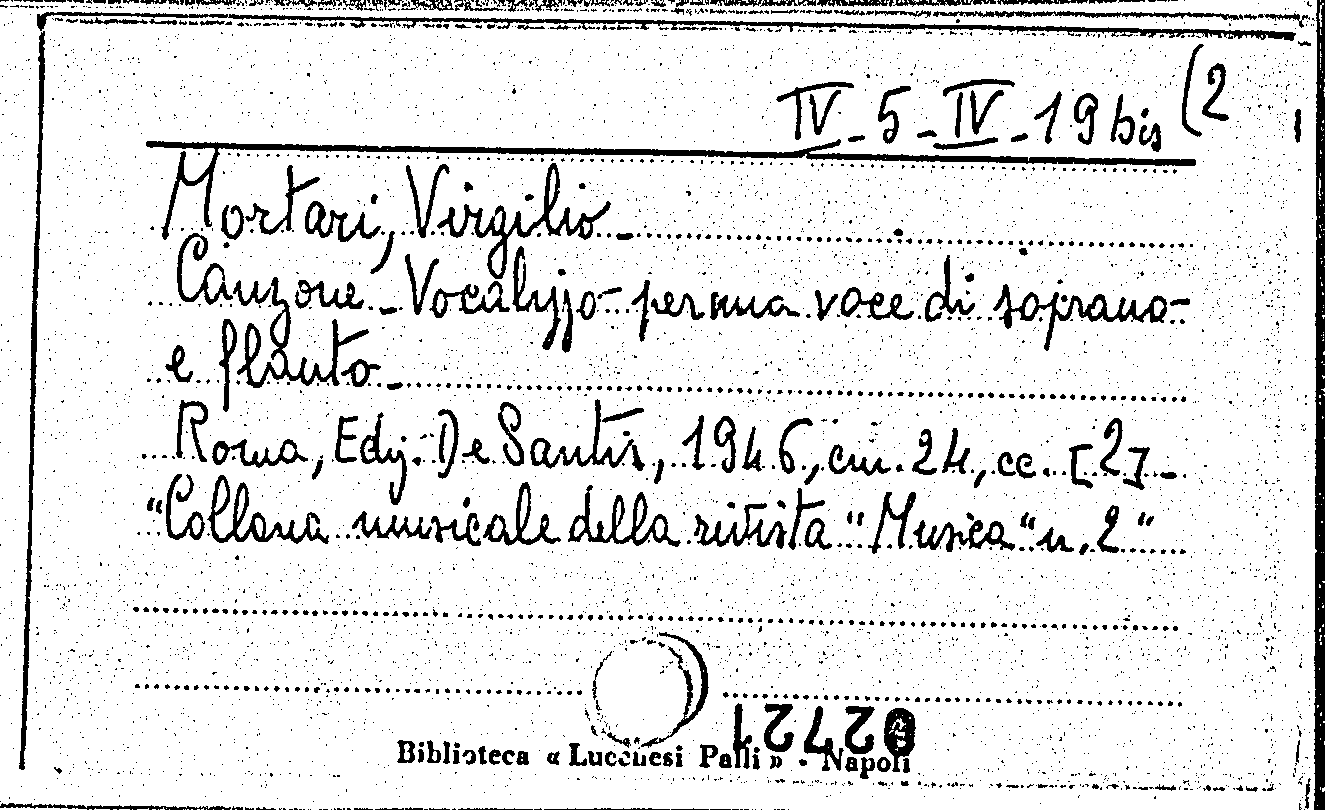 IV-5-IV-19 bis (2
Mortari, Virgilio-
Canzone-Vocalizzo- per una voce di soprano-
e flauto-
Roma, Ediz. De Santis, 1946, cm. 24, cc. [2]-
"Collana musicale della rivista "Musica" n. 2"
02721
Biblioteca « Lucchesi Palli » - Napoli